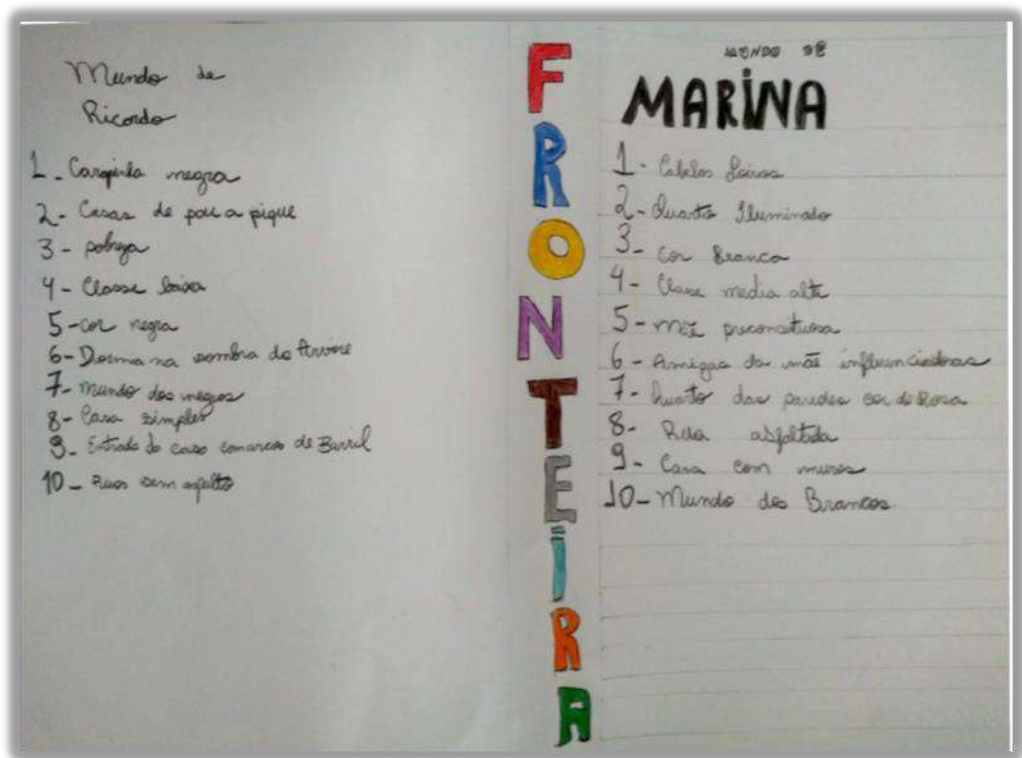 Mundo de
Ricardo
1 - Carapinha negra
2 - Casas de pau a pique
3 - pobreza
4 - Classe baixa
5 - cor negra
6 - Dormia na sombra da Árvore
7 - mundo dos negros
8 - Casa simples
9 - Entrada da casa com arcos de Barril
10 - Ruas sem asfalto
FRONTEIRA
MUNDO DE
MARINA
1 - Cabelos Loiros
2 - Quarto Iluminado
3 - Cor Branca
4 - Classe media alta
5 - mãe preconceituosa
6 - Amigas da mãe influenciadoras
7 - Quarto das paredes cor de Rosa
8 - Rua asfaltada
9 - Casa com muros
10 - Mundo dos Brancos